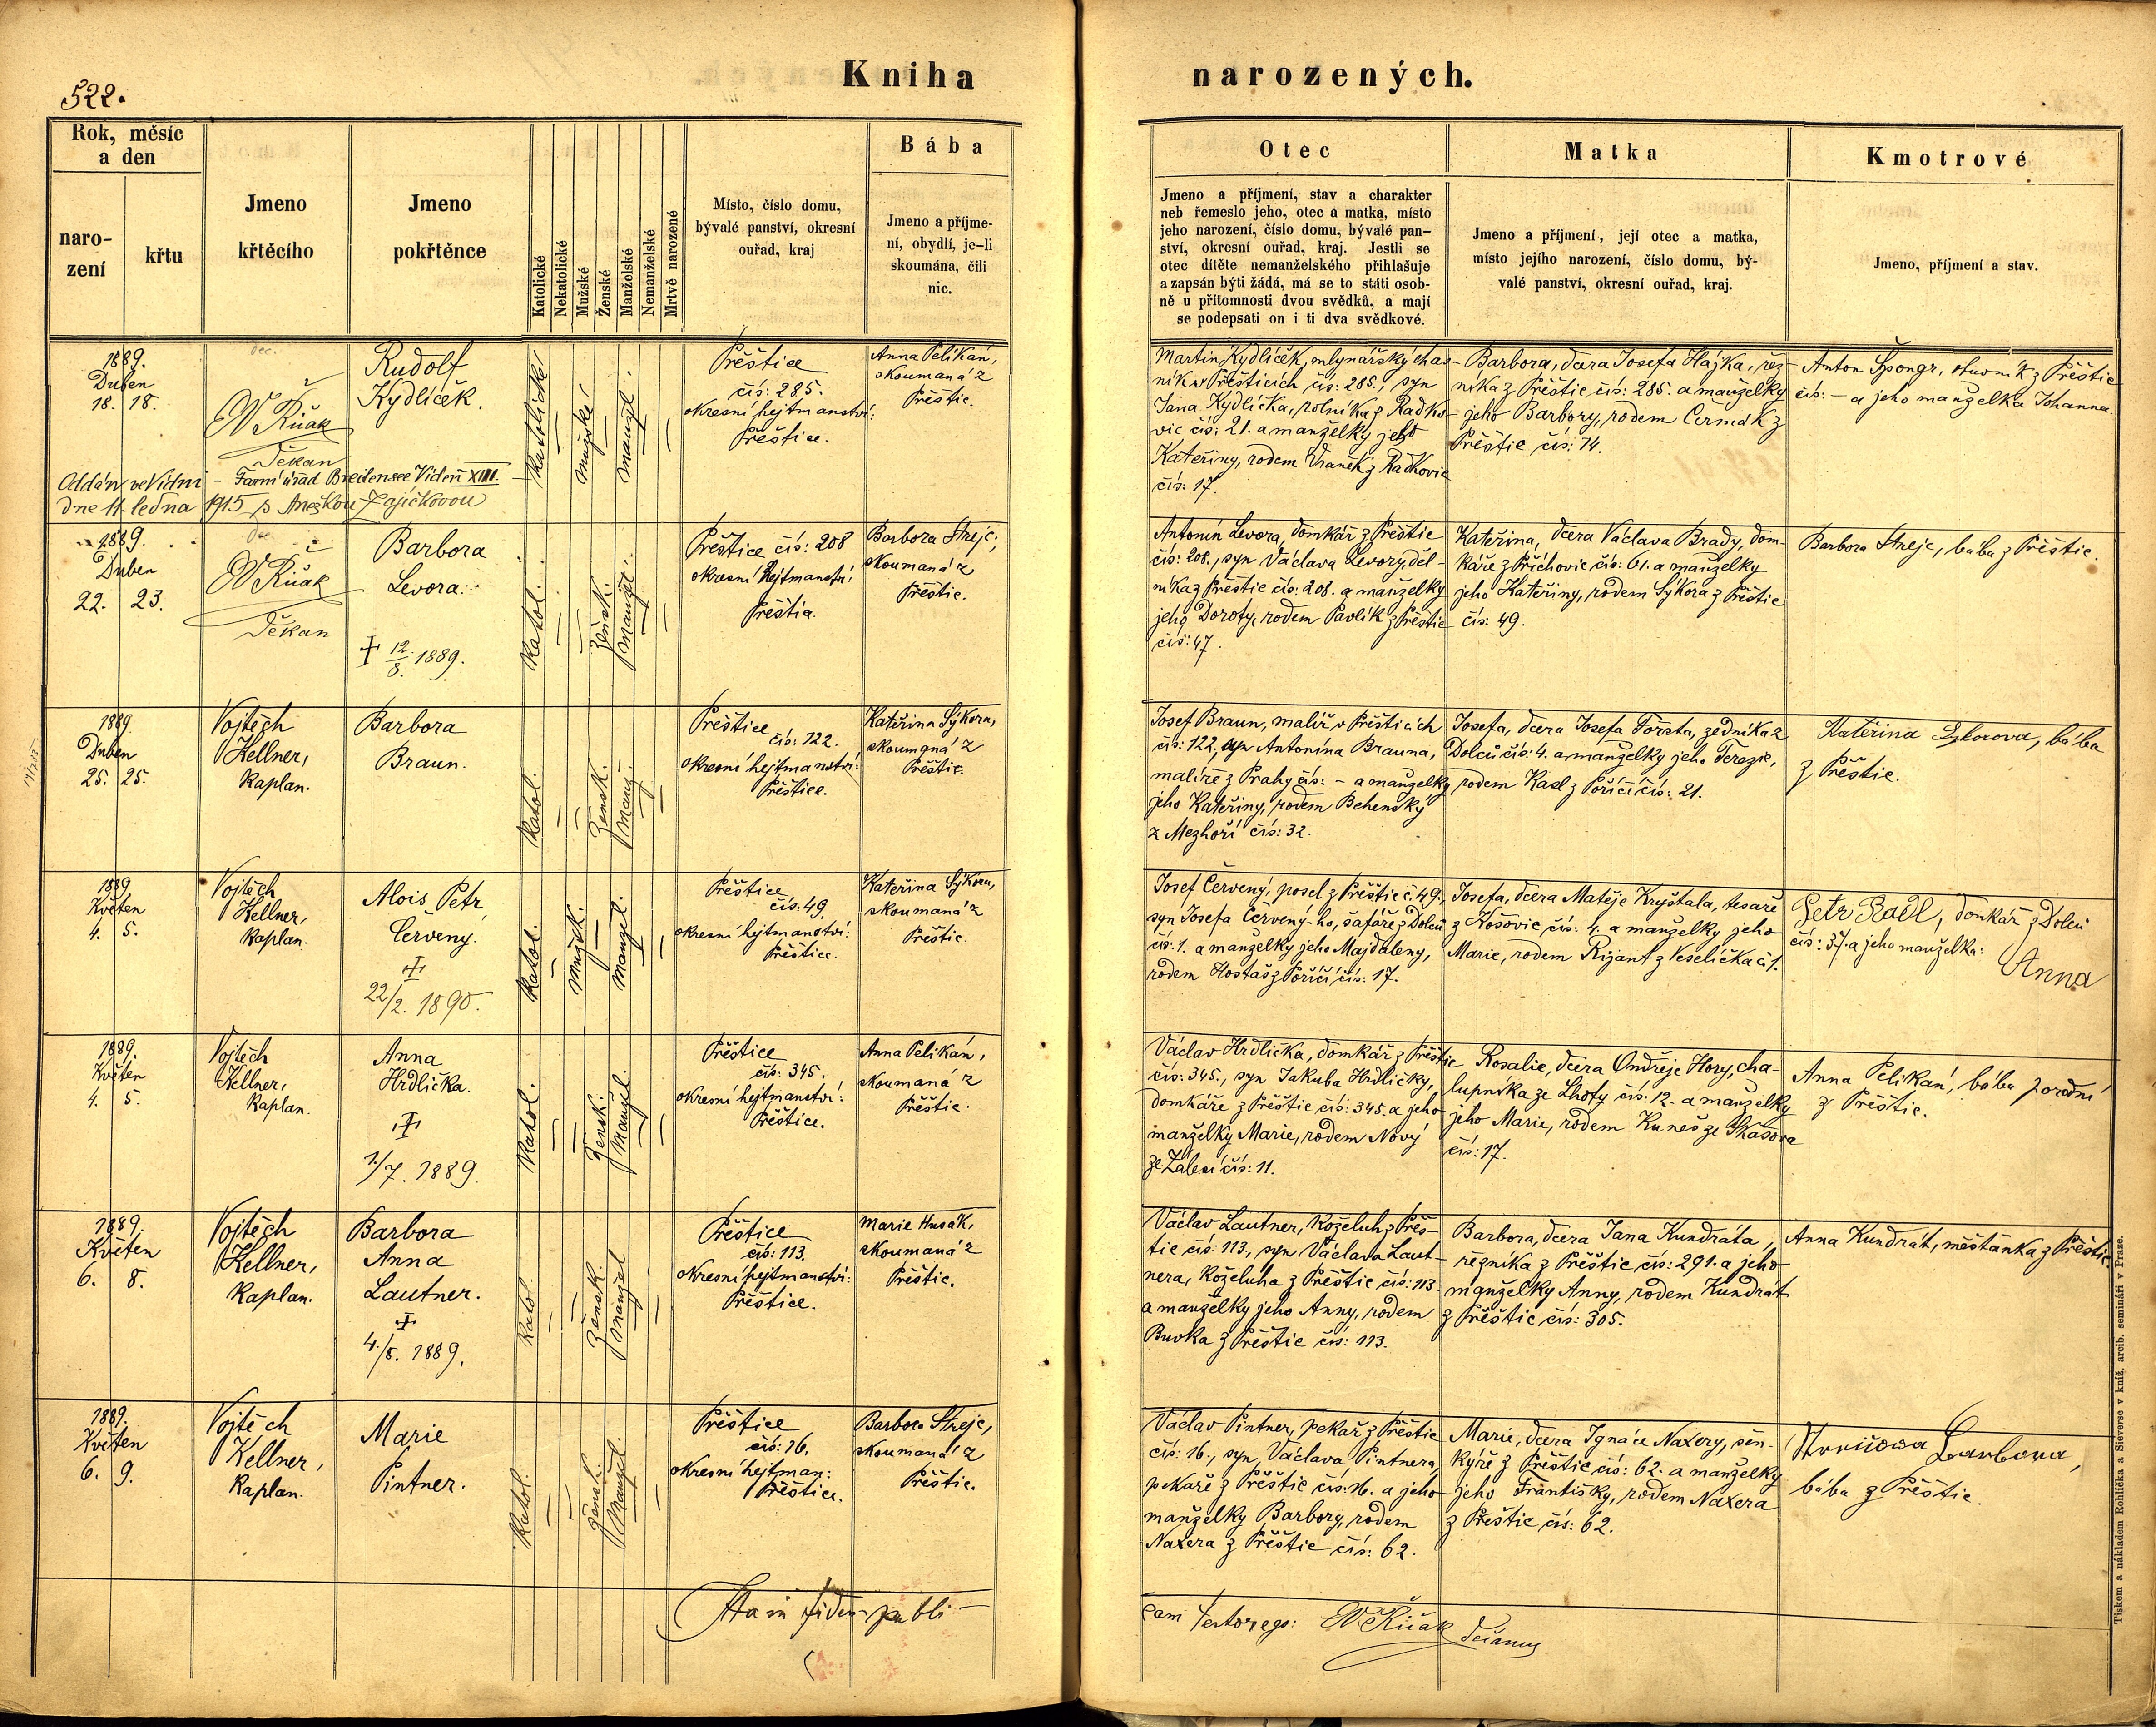 522.
Kniha
narozených.
Rok, měsíc
a den
naro-
zení
křtu
Jmeno
křtěcího
Jmeno
pokřtěnce
Katolické
Nekatolické
Mužské
Ženské
Manželské
Nemanželské
Mrtvě narozené
Místo, číslo domu,
bývalé panství, okresní
ouřad, kraj
Bába
Jmeno a příjme-
ní, obydlí, je-li
skoumána, čili
nic.
Otec
Jmeno a příjmení, stav a charakter
neb řemeslo jeho, otec a matka, místo
jeho narození, číslo domu, bývalé pan-
ství, okresní ouřad, kraj. Jestli se
otec dítěte nemanželského přihlašuje
a zapsán býti žádá, má se to státi osob-
ně u přítomnosti dvou svědků, a mají
se podepsati on i ti dva svědkové.
Matka
Jmeno a příjmení, její otec a matka,
místo jejího narození, číslo domu, bý-
valé panství, okresní ouřad, kraj.
Kmotrové
Jmeno, příjmení a stav.
1889.
Duben
18. 18.
Děkan
Rudolf
Kydlíček.
Katolické
mužské
manžel.
Přeštice
čís: 285.
okresní hejtmanství:
Přeštice.
Anna Pelikán,
skoumaná z
Přeštic.
Martin Kydlíček, mlynářský
v Přešticích čís: 285., syn
Jana Kydlíčka, rolníka z Radko-
vic čís: 21. a manželky jeho
Kateřiny, rodem z Radkovic
čís: 17.
Barbora, dcera Josefa Hájka, řez-
níka z Přeštic čís: 285. a manželky
jeho Barbory, rodem Čermák z
Přeštic čís: 74.
Anton Špongr, z Přeštic
čís: – a jeho manželka Johanna.
Oddán ve Vídni – Farní úřad Breitensee Vídeň XIII.
dne 11. ledna 1915 s Anežkou Zajíčkovou
1889.
Duben
22. 23.
Děkan
Barbora
Levora.
+ 12./8. 1889.
Katol.
žensk.
manžel.
Přeštice čís: 208
okresní hejtmanství
Přeštice.
Barbora Strejc,
skoumaná z
Přeštic.
Antonín Levora, domkář z Přeštic
čís: 208., syn Václava Levory, děl-
níka z Přeštic čís: 208. a manželky
jeho Doroty, rodem Pavlík z Přeštic
čís: 47.
Kateřina, dcera Václava Brady, dom-
káře z Příchovic čís: 61. a manželky
jeho Kateřiny, rodem Sýkora z Přeštic
čís: 49.
Barbora Strejc, bába z Přeštic.
1889
Duben
25. 25.
Vojtěch
Kellner,
Kaplan.
Barbora
Braun.
Katol.
žensk.
manž.
Přeštice
čís: 122.
okresní hejtmanství:
Přeštice.
Kateřina Sýkora,
skoumaná z
Přeštic.
Josef Braun, malíř v Přešticích
čís: 122, syn Antonína Brauna,
malíře z Prahy čís: – a manželky
jeho Kateřiny, rodem Behenský
z Mezhoří čís: 32.
Josefa, dcera Josefa Foršta, zedníka z
Dolců čís: 4. a manželky jeho Terezie,
rodem Kasl z Poříčí čís: 21.
Kateřina Sykorova, bába
z Přeštic.
1889
Květen
4. 5.
Vojtěch
Kellner,
Kaplan.
Alois Petr
Červený.
+
22/2. 1890.
Katol.
mužsk.
manžel.
Přeštice
čís: 49
okresní hejtmanství:
Přeštice.
Kateřina Sýkora,
skoumaná z
Přeštic.
Josef Červený, posel z Přeštic č. 49.,
syn Josefa Červený-ho, šafáře z Dolců
čís: 1. a manželky jeho Majdaleny,
rodem Hostaš z Poříčí čís: 17.
Josefa, dcera Matěje Kryštala, tesaře
z Kosovic čís: 4. a manželky jeho
Marie, rodem z Veselíčka č. 1.
Petr Radl, domkář z Dolců
čís: 37. a jeho manželka:
Anna
1889.
Květen
4. 5.
Vojtěch
Kellner,
Kaplan.
Anna
Hrdlička.
+
1./7. 1889.
Katol.
žensk.
manžel.
Přeštice
čís: 345.
okresní hejtmanství:
Přeštice.
Anna Pelikán,
skoumaná z
Přeštic.
Václav Hrdlička, domkář z Přeštic
čís: 345., syn Jakuba Hrdličky,
domkáře z Přeštic čís: 345. a jeho
manželky Marie, rodem Nový
ze Zálesí čís: 11.
Rosalie, dcera Ondřeje Hory, cha-
lupníka ze Lhoty čís: 12. a manželky
jeho Marie, rodem Kuneš ze Skašova
čís: 17.
Anna Pelikán, bába porodní
z Přeštic.
1889.
Květen
6. 8.
Vojtěch
Kellner,
Kaplan.
Barbora
Anna
Lautner.
+
4./8. 1889.
Katol.
žensk.
manžel
Přeštice
čís: 113.
okresní hejtmanství:
Přeštice.
Marie Husák,
skoumaná z
Přeštic.
Václav Lautner, koželuh z Přeš-
tic čís: 113., syn Václava Laut-
nera, koželuha z Přeštic čís: 113
a manželky jeho Anny, rodem
Buvka z Přeštic čís: 113.
Barbora, dcera Jana Kundráta,
řezníka z Přeštic čís: 291. a jeho
manželky Anny, rodem Kundrát
z Přeštic čís: 305.
Anna Kundrát, měšťanka z Přeštic.
1889.
Květen
6. 9.
Vojtěch
Kellner,
Kaplan.
Marie
Pintner.
Katol.
žensk.
manžel.
Přeštice
čís: 16,
okresní hejtman:
Přeštice.
Barbora Strejc,
skoumaná z
Přeštic.
Václav Pintner, pekař z Přeštic
čís: 16., syn Václava Pintnera,
pekaře z Přeštic čís: 16. a jeho
manželky Barbory, rodem
Naxera z Přeštic čís: 62.
Marie, dcera Ignáce Naxery, šen-
kýře z Přeštic čís: 62. a manželky
jeho Františky, rodem Naxera
z Přeštic čís: 62.
Barbora,
bába z Přeštic.
fidem publi-
cam testor ego:
Tiskem a nákladem Rohlíčka a Sieverse v kníž. arcib. semináři v Praze.